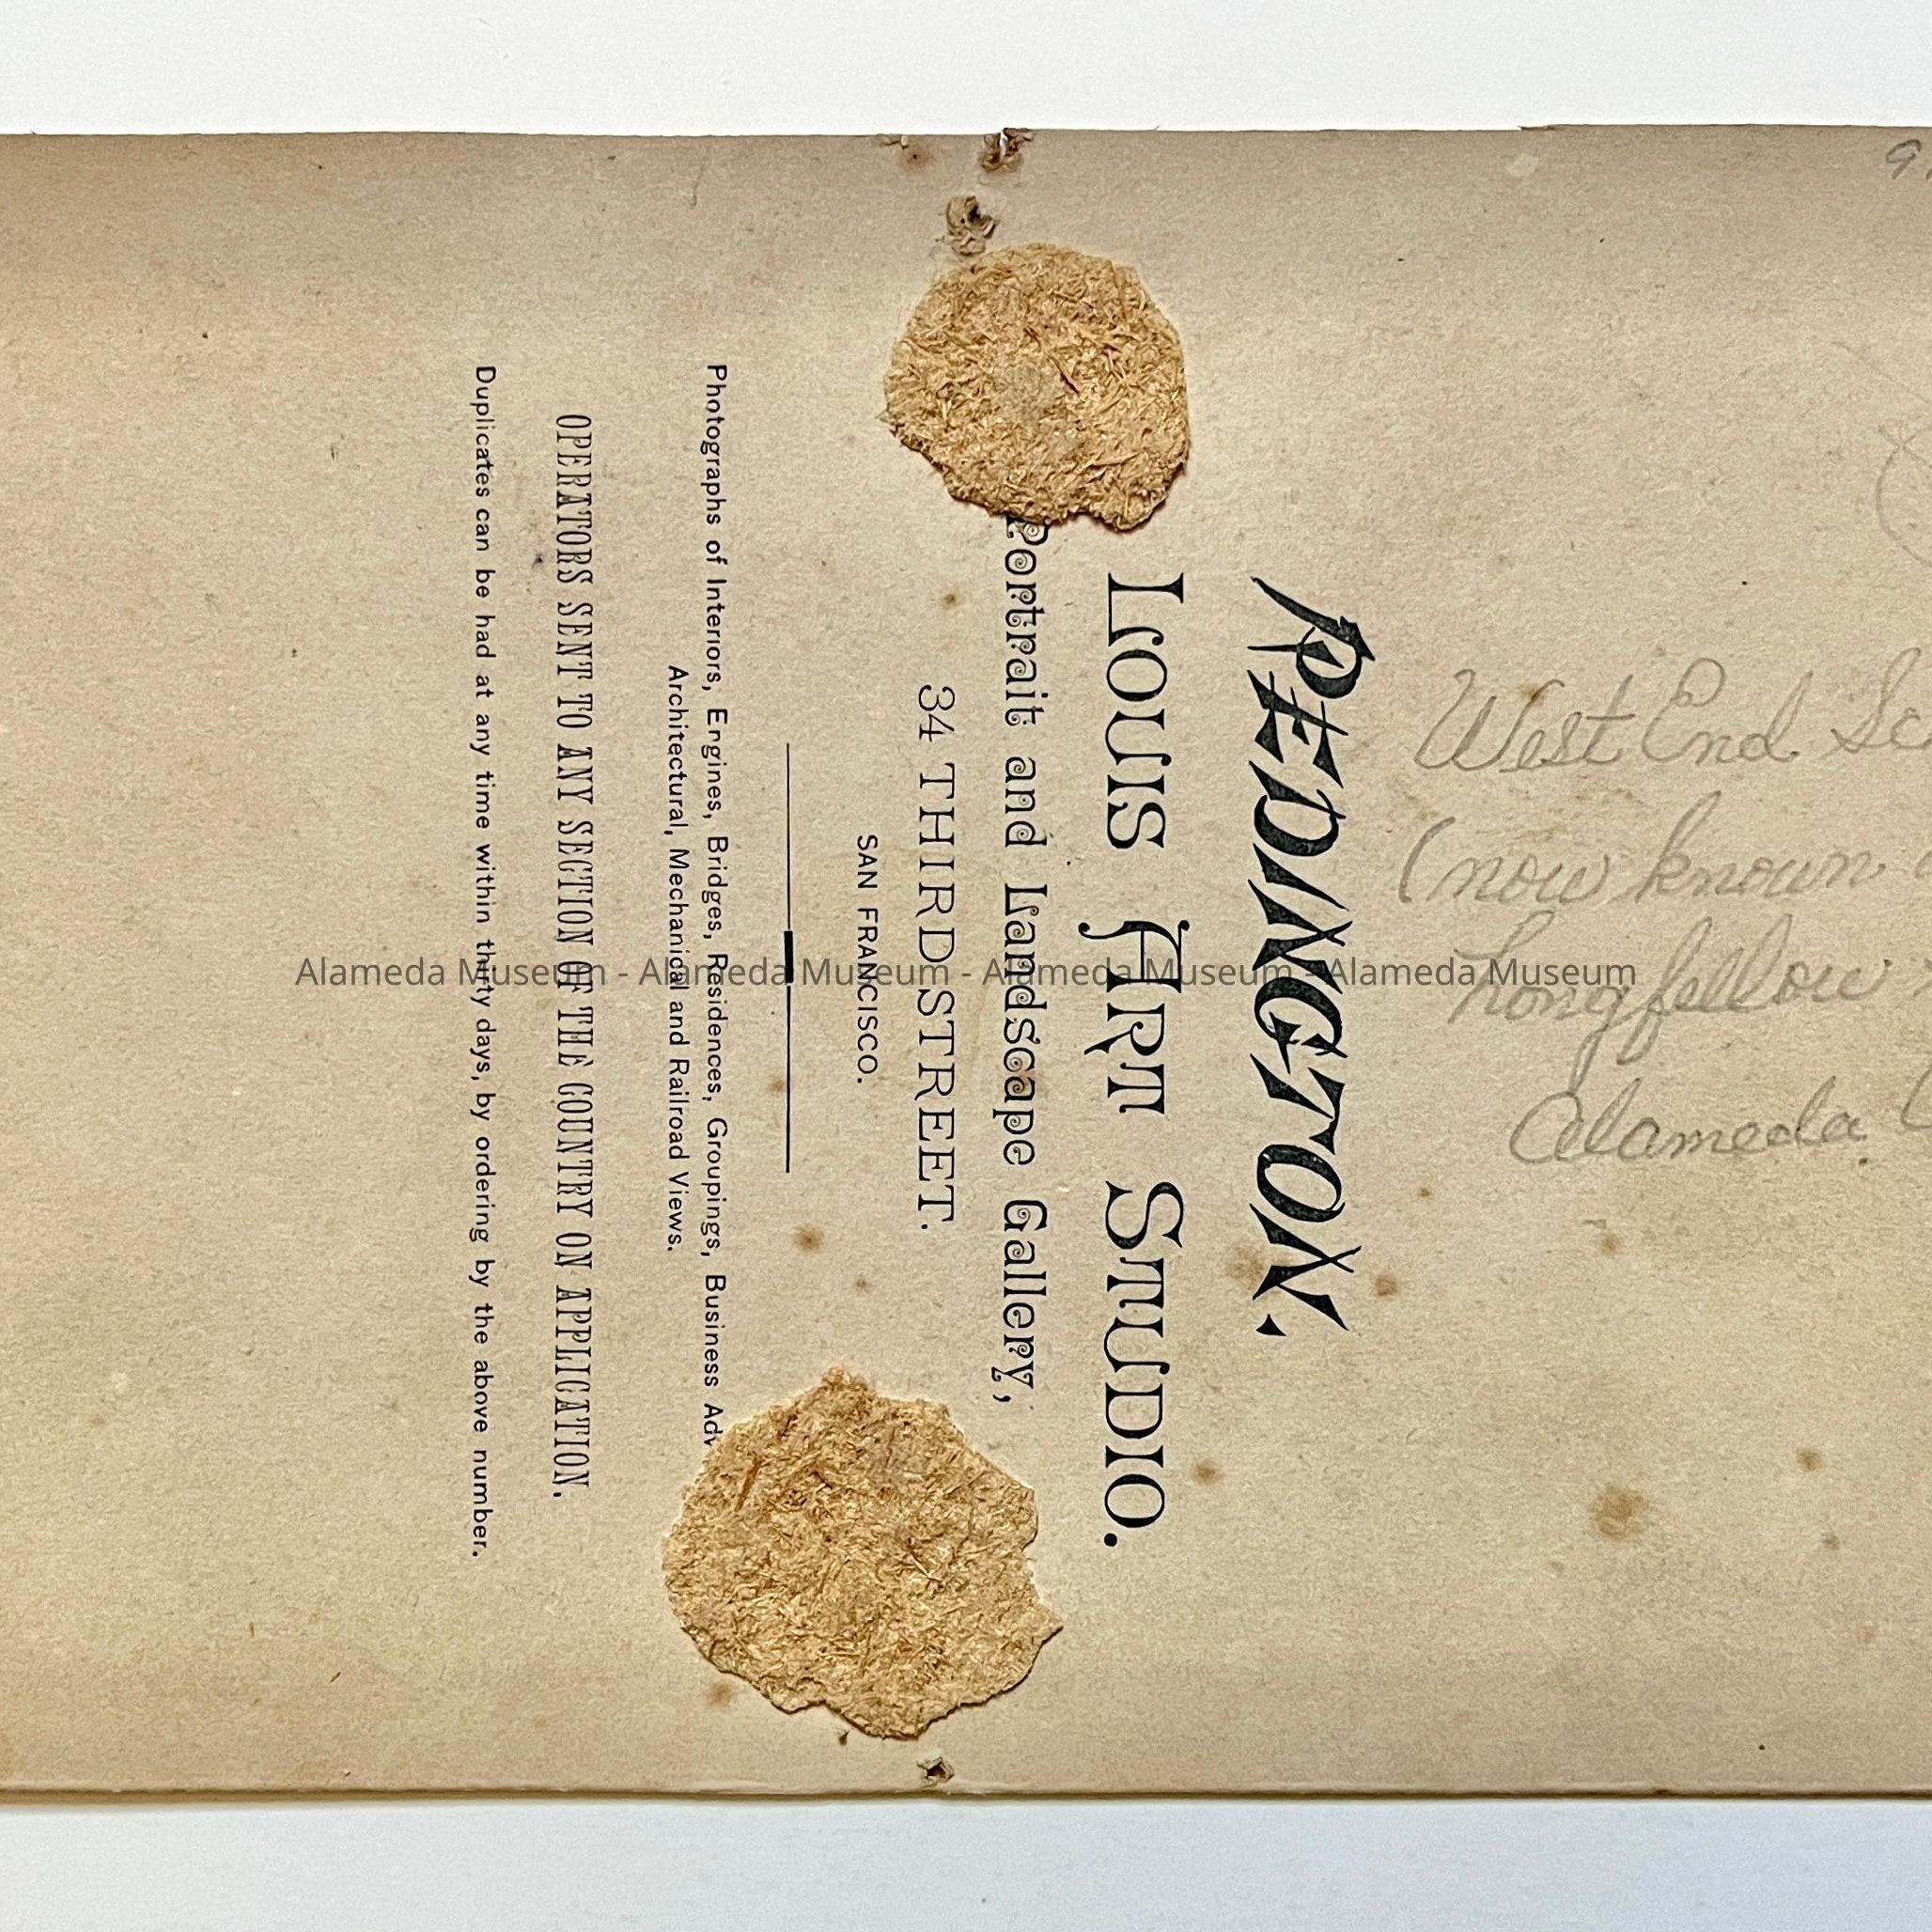 REDINGTON.
LOUIS ART STUDIO.
Portrait and Landscape Gallery,
34 THIRD STREET.
SAN FRANCISCO.
Photographs of Interiors, Engines, Bridges, Residences, Groupings, Business Adv
Architectural, Mechanical and Railroad Views.
OPERATORS SENT TO ANY SECTION OF THE COUNTRY ON APPLICATION.
Duplicates can be had at any time within thirty days, by ordering by the above number.
West End Sc
(now known
Longfellow
Alameda.
Alameda Museum - Alameda Museum - Alameda Museum - Alameda Museum